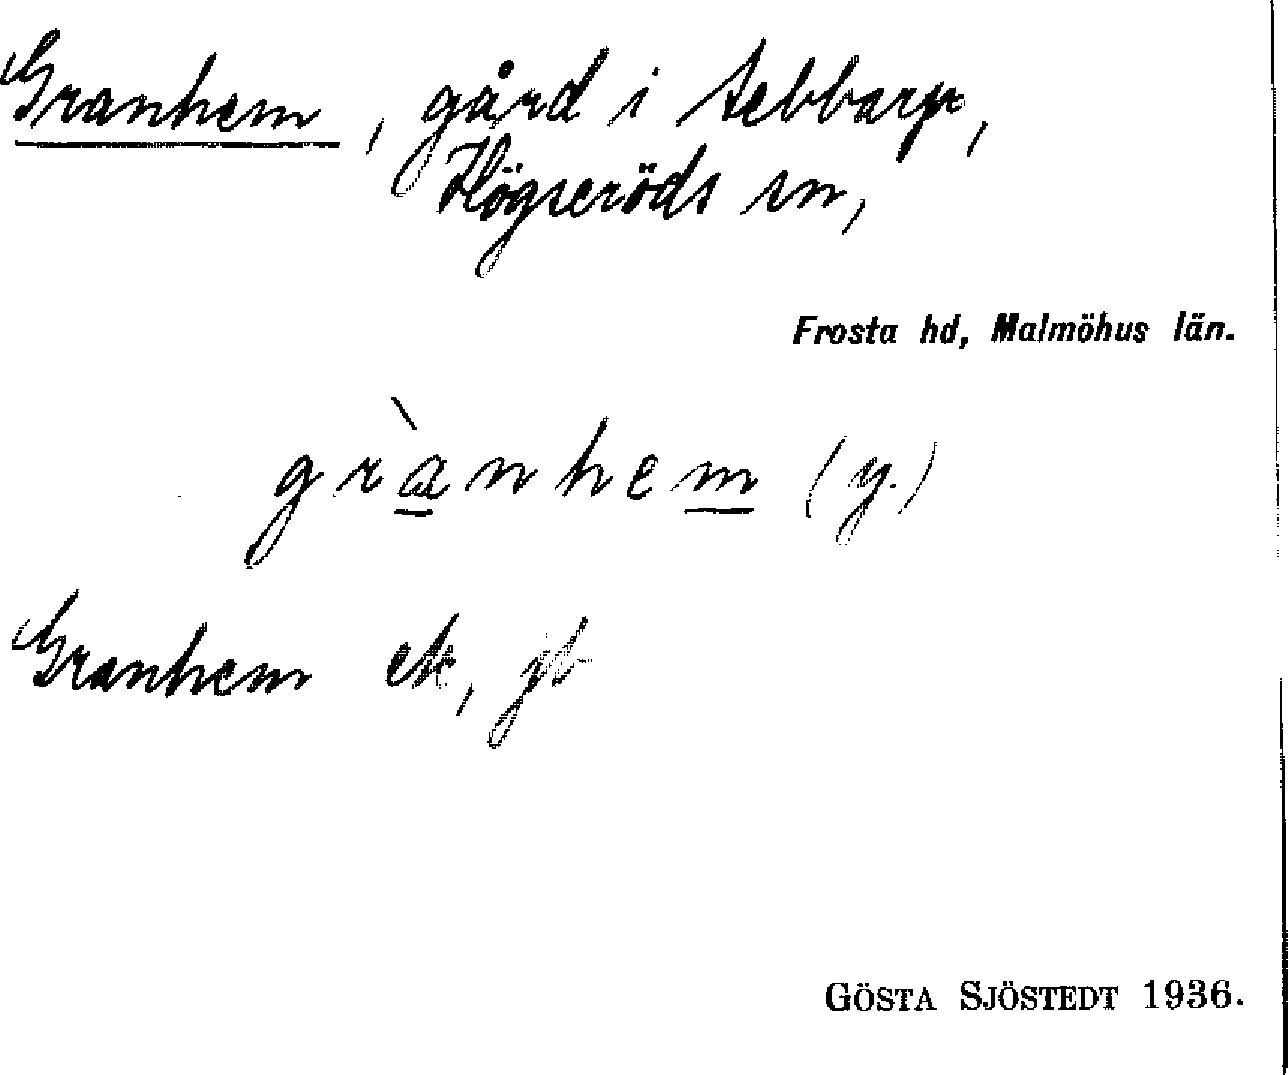 Granhem, gård i Sebbarp,
Högseröds sn,
Frosta hd, Malmöhus län.
grànhem (y.)
Granhem ek, jb
GÖSTA SJÖSTEDT 1936.